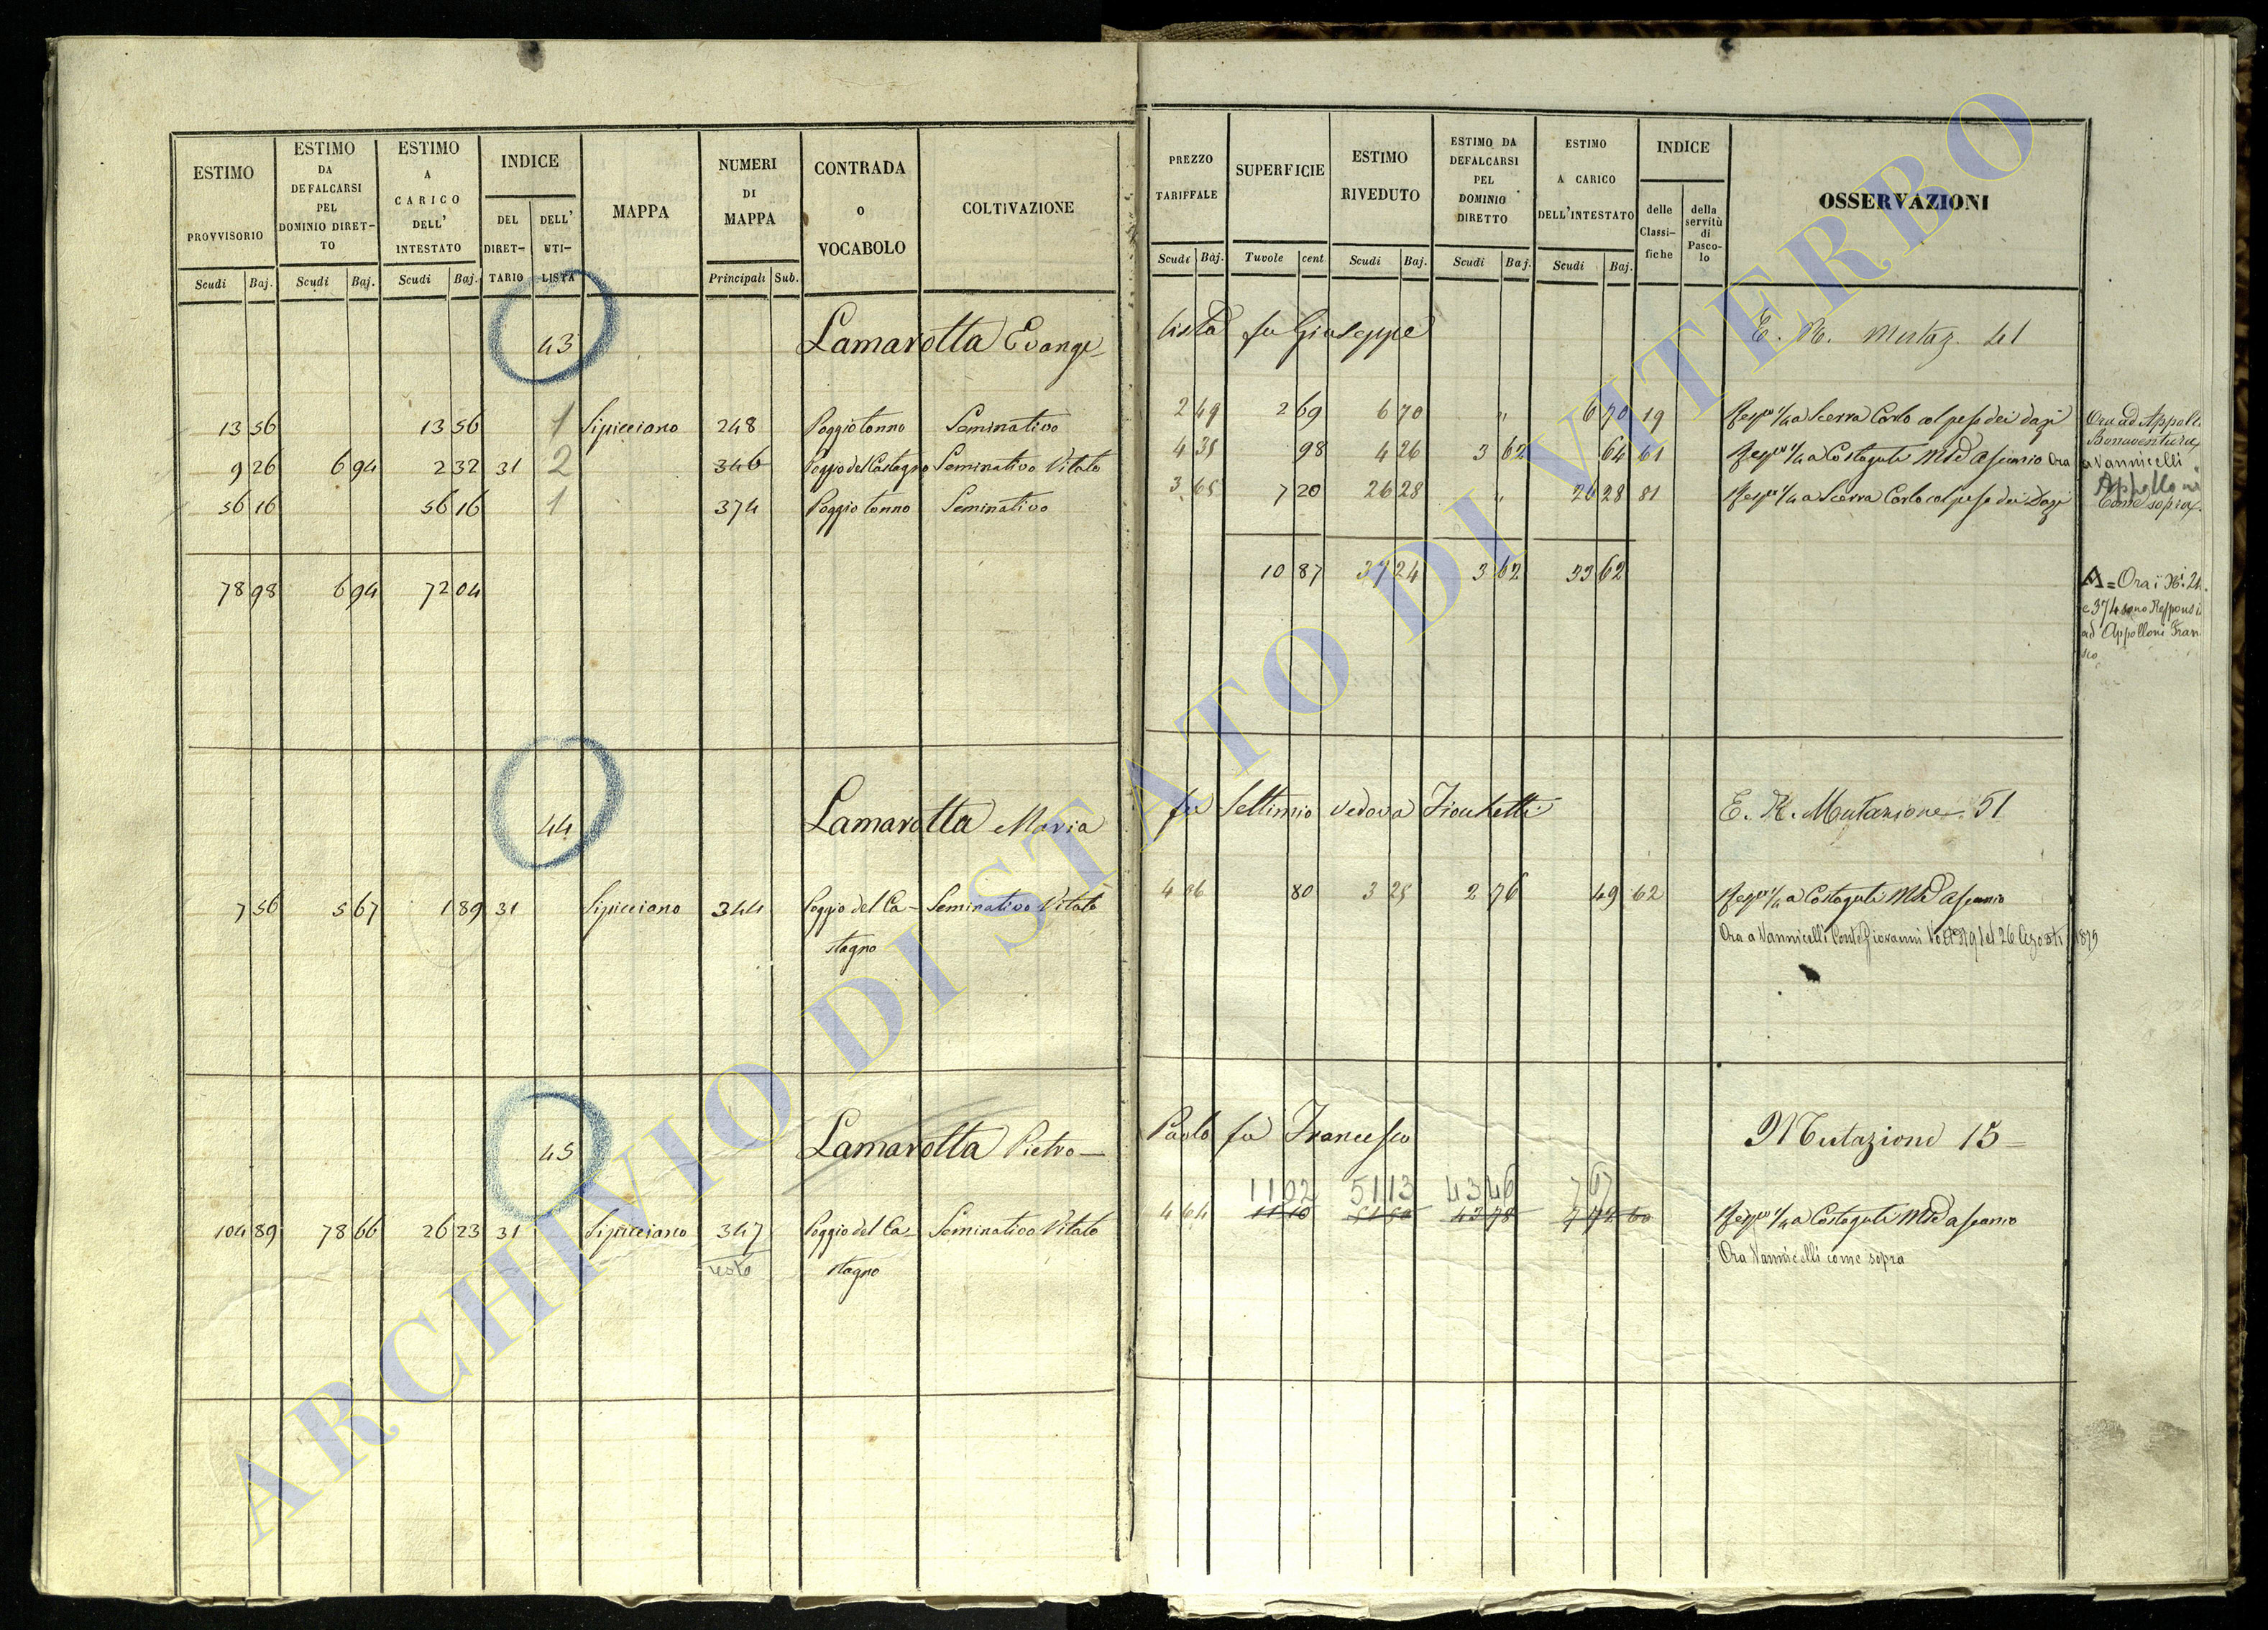 ESTIMO PROVVISORIO Scudi Baj.
ESTIMO DA DEFALCARSI PEL DOMINIO DIRET-TO Scudi Baj.
ESTIMO A CARICO DELL' INTESTATO Scudi Baj.
INDICE DEL DIRET-TARIO DELL' UTI-LISTA
MAPPA
NUMERI DI MAPPA Principali Sub.
CONTRADA O VOCABOLO
COLTIVAZIONE
PREZZO TARIFFALE Scudi Baj.
SUPERFICIE Tavole cent
ESTIMO RIVEDUTO Scudi Baj.
ESTIMO DA DEFALCARSI PEL DOMINIO DIRETTO Scudi Baj.
ESTIMO A CARICO DELL'INTESTATO Scudi Baj.
INDICE delle Classi-fiche della servitù di Pasco-lo
OSSERVAZIONI
43 Lamarotta Evange-lista fu Giuseppe E. R. Mutaz. 41
13 56 13 56 1 Sipicciano 248 Poggio tonno Seminativo 2 49 2 69 6 70 " 6 70 19 Respo 1/4 a Scerra Carlo col peso dei dazi Ora ad Appollo
Bonaventura
9 26 6 94 2 32 31 2 346 Poggio del Castagno Seminativo Vitato 4 35 98 4 26 3 62 64 61 Respo 1/4 a Costaguti Mse Ascanio Ora a Vannicelli
Appolloni
56 16 56 16 1 374 Poggio tonno Seminativo 3 65 7 20 26 28 " 26 28 81 Respo 1/4 a Scerra Carlo col peso dei Dazi Come sopra
78 98 6 94 72 04 10 87 37 24 3 62 33 62
= Ora i Ni 24
e 374 sono Responsi
ad Appolloni Fran
sco
44 Lamarotta Maria fu Settimio vedova Fiochetti E. R. Mutazione 51
7 56 5 67 1 89 31 Sipicciano 344 Poggio del Ca- Seminativo Vitato 4 06 80 3 25 2 76 49 62 Respo 1/4 a Costaguti Mse Ascanio
stagno Ora a Vannicelli Conte Giovanni del 26 Agosto 1879
45 Lamarotta Pietro-Paolo fu Francesco Mutazione 15
11 02 51 13 43 46 7 67
104 89 78 66 26 23 31 Sipicciano 347 Poggio del Ca- Seminativo Vitato 4 64 11 10 51 50 43 78 7 72 60 Respo 1/4 a Costaguti Mse Ascanio
resto stagno Ora Vannicelli come sopra
ARCHIVIO DI STATO DI VITERBO